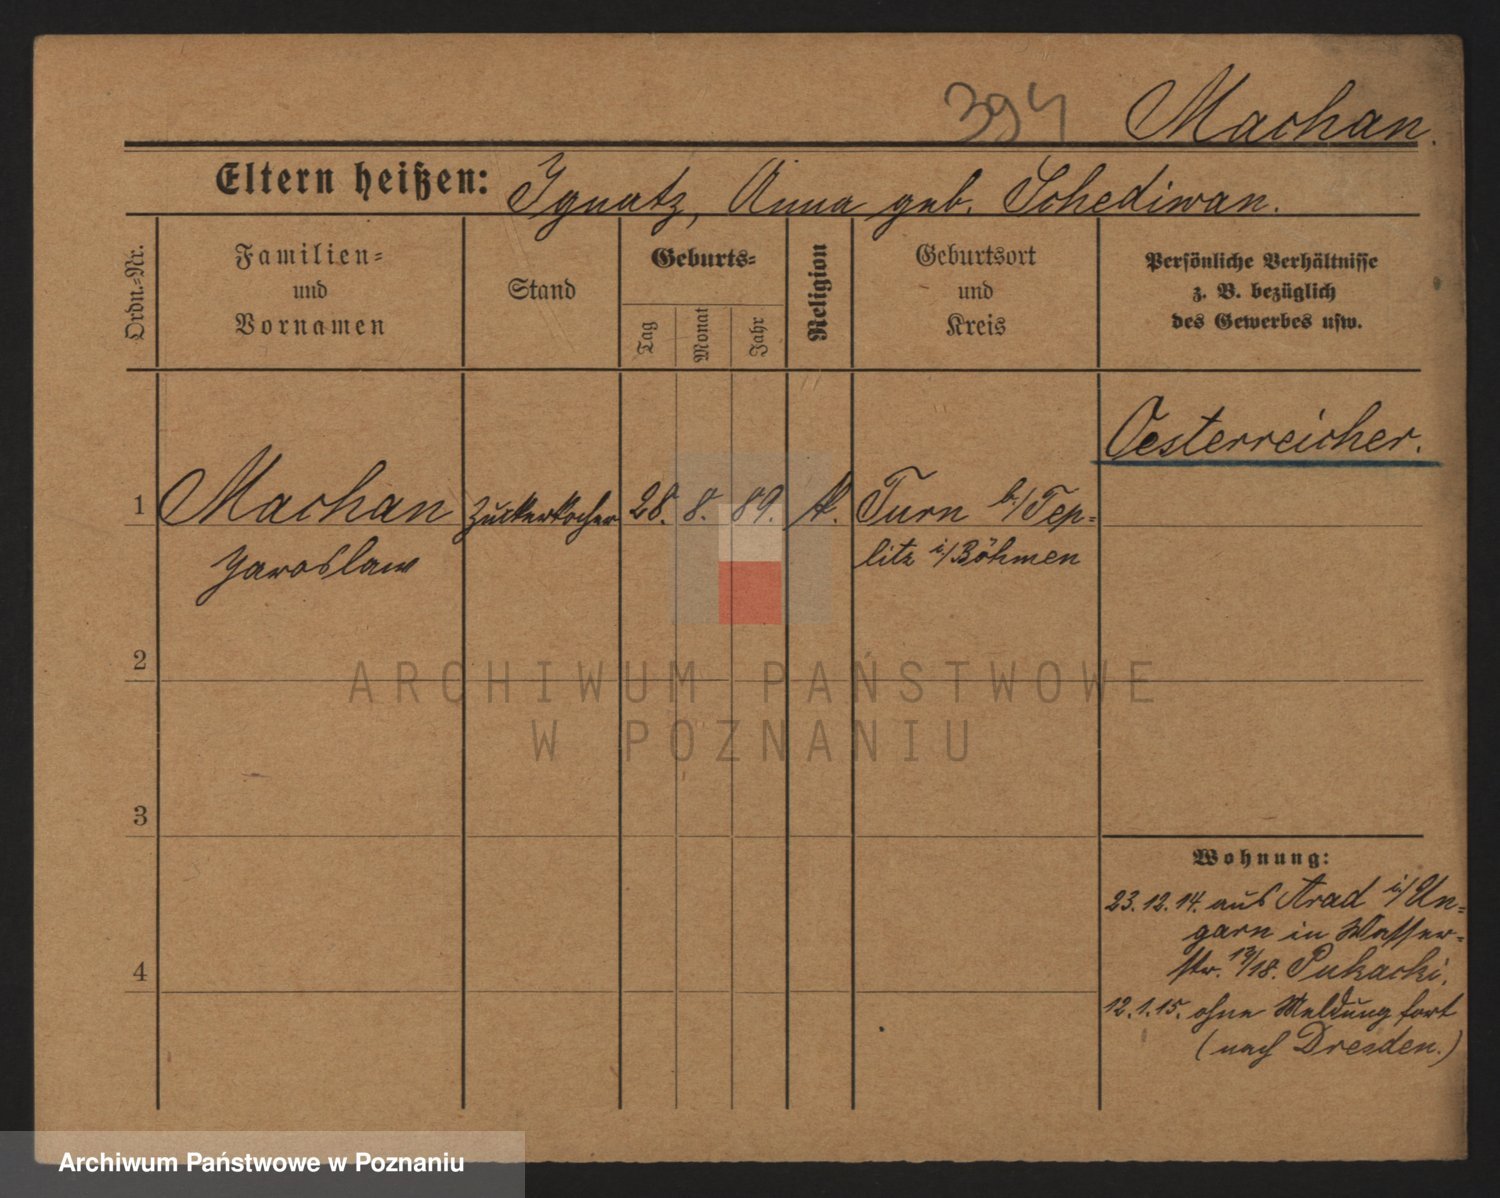 394 Machan.
Eltern heißen: Ignatz, Anna geb. Schediwan.
Ordn.-Nr.
Familien-
und
Vornamen
Stand
Geburts-
Tag
Monat
Jahr
Religion
Geburtsort
und
Kreis
Persönliche Verhältnisse
z. B. bezüglich
des Gewerbes usw.
Oesterreicher.
1 Machan Zuckerkocher 28. 8. 89. k. Turn b/Tep-
Jaroslaw litz i/Böhmen
2
3
4
Wohnung:
23.12.14. aus Arad i/Un-
garn in Wasser-
str. 17/18. Pukacki.
12.1.15. ohne Meldung fort
(nach Dresden.)
ARCHIWUM PAŃSTWOWE
W POZNANIU
Archiwum Państwowe w Poznaniu